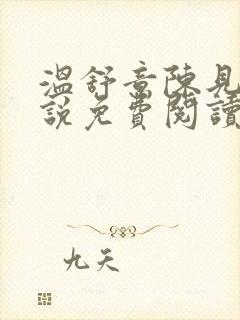 溫舒章陳見
說免費閱讀
九天